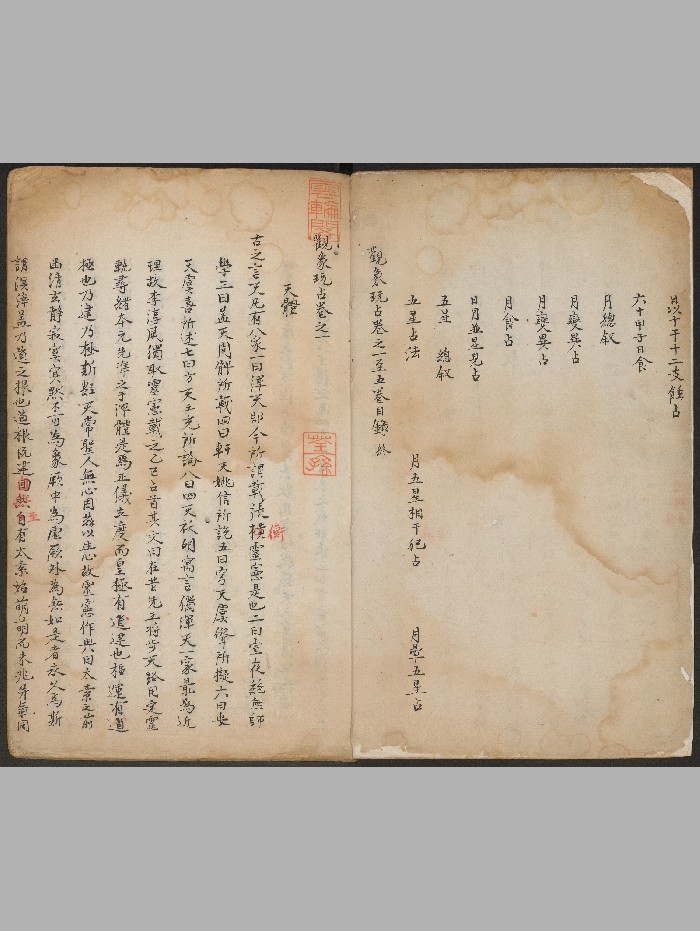 以十干十二支蝕占
六十甲子日食
月總叙
月變異占
月變異占
月食占
日月並見占
五星 總叙
五星占法 月五星相干犯占 月犯五星占
觀象玩占卷之一至五卷目錄終
觀象玩占卷之一
天體
古之言天凡有八家一曰渾天即今所謂載張橫靈憲是也二曰宣夜絕無師
衡
學三曰蓋天周髀所載四曰軒天姚信所說五曰穹天虞聳所擬六曰安
天虞喜所述七曰方天王充所論八曰四天祆胡寓言獨渾天一家最為近
理故李淳風獨取靈憲載之乙巳占首其文曰在昔先王將步天路用定靈
軌尋緒本元先準之于渾體是為正儀立度而皇極有逌建也樞運有逌
極也乃建乃極斯經天常聖人無心因茲以生心故靈憲作興曰太素之前
幽清玄靜寂寞冥默不可為象厥中為虛厥外為無如是者永久焉斯
謂溟涬蓋乃道之根也道根既建自無自有太素始萌萌而未兆并氣同
至